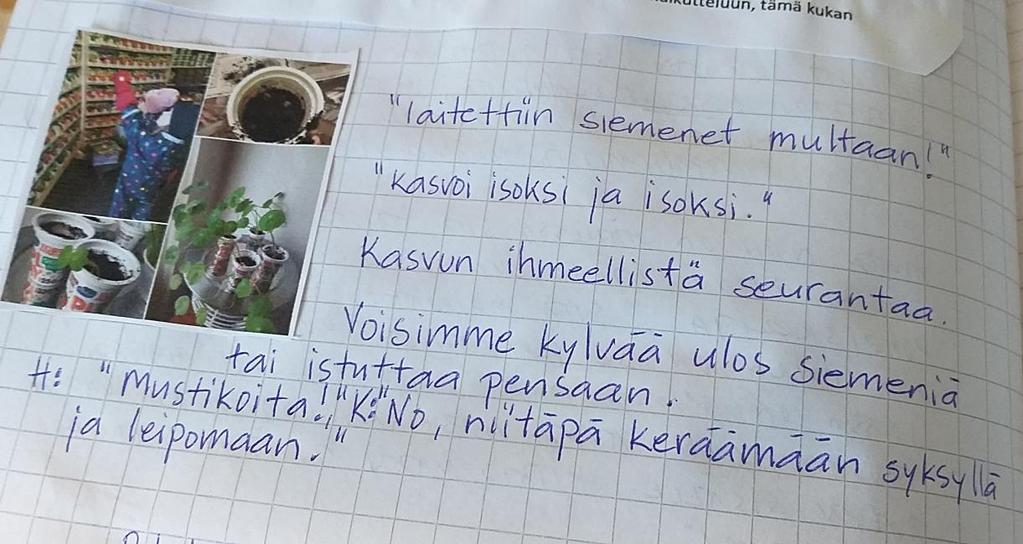 tämä kukan
"laitettiin siemenet multaan!"
"Kasvoi isoksi ja isoksi."
Kasvun ihmeellistä seurantaa.
Voisimme kylvää ulos siemeniä
tai istuttaa pensaan.
H: "Mustikoita!," K: "No, niitäpä keräämään syksyllä
ja leipomaan."